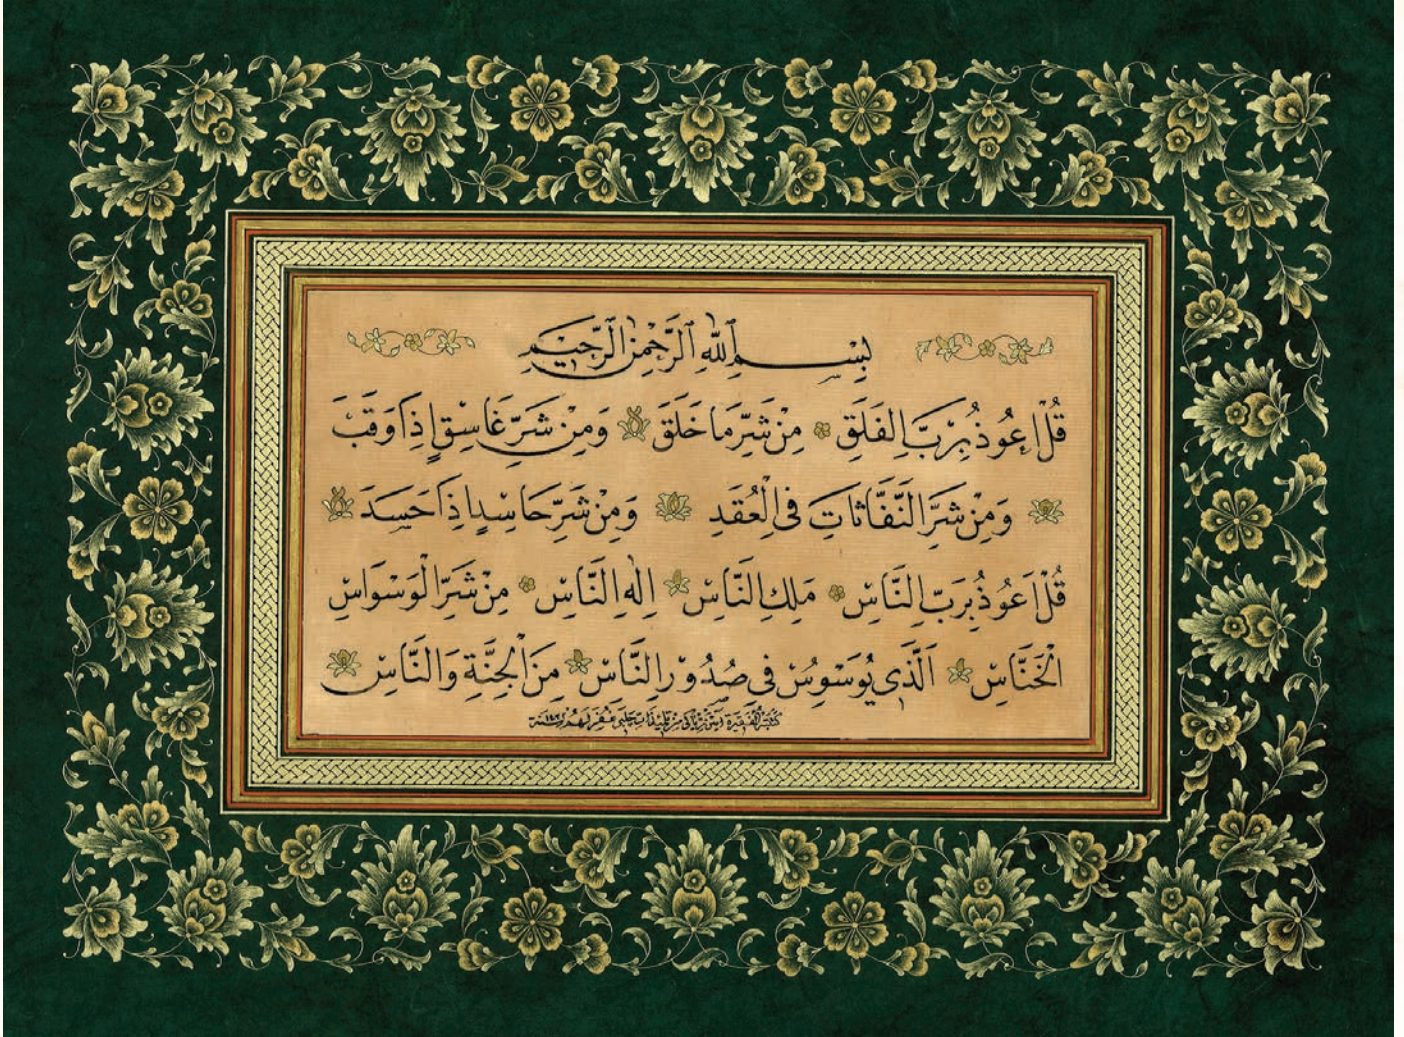 بِسْمِ ٱللّٰهِ ٱلرَّحْمٰنِ ٱلرَّحِيمِ
قُلْ اَعُوذُ بِرَبِّ الْفَلَقِ مِنْ شَرِّ مَا خَلَقَ وَمِنْ شَرِّ غَاسِقٍ اِذَا وَقَبَ
وَمِنْ شَرِّ النَّفَّاثَاتِ فِي الْعُقَدِ وَمِنْ شَرِّ حَاسِدٍ اِذَا حَسَدَ
قُلْ اَعُوذُ بِرَبِّ النَّاسِ مَلِكِ النَّاسِ اِلٰهِ النَّاسِ مِنْ شَرِّ الْوَسْوَاسِ
الْخَنَّاسِ اَلَّذِي يُوَسْوِسُ فِي صُدُورِ النَّاسِ مِنَ الْجِنَّةِ وَالنَّاسِ